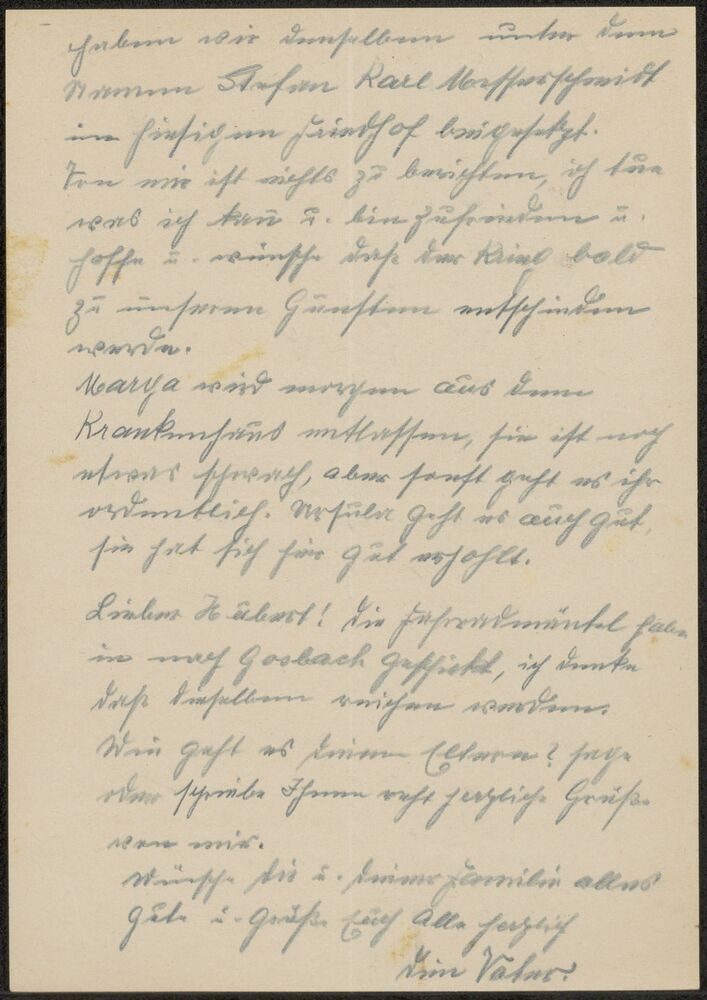 haben wir denselben unter dem
Namen Stefan Karl Messerschmidt
im hiesigen Friedhof beigesetzt.
Von mir ist nichts zu berichten, ich tue
was ich kan u. bin zufrieden u.
hoffe u. wünsche daß der Krieg bald
zu unseren Gunsten entschieden
werde.
Marga wird morgen aus dem
Krankenhaus entlassen, sie ist noch
etwas schwach, aber sonst geht es ihr
ordentlich. Ursula geht es auch gut,
sie hat sich hier gut erhohlt.
Lieber Hubert! Die Fahrradmäntel habe
ie nach Gosbach geschickt, ich denke
daß dieselben reichen werden.
Wie geht es deinen Eltern? sage
oder schreibe Ihnen recht herzliche Grüße
von mir.
Wünsche dir u. deiner Familie alles
Gute u. Grüße Euch Alle herzlich
Dein Vater.